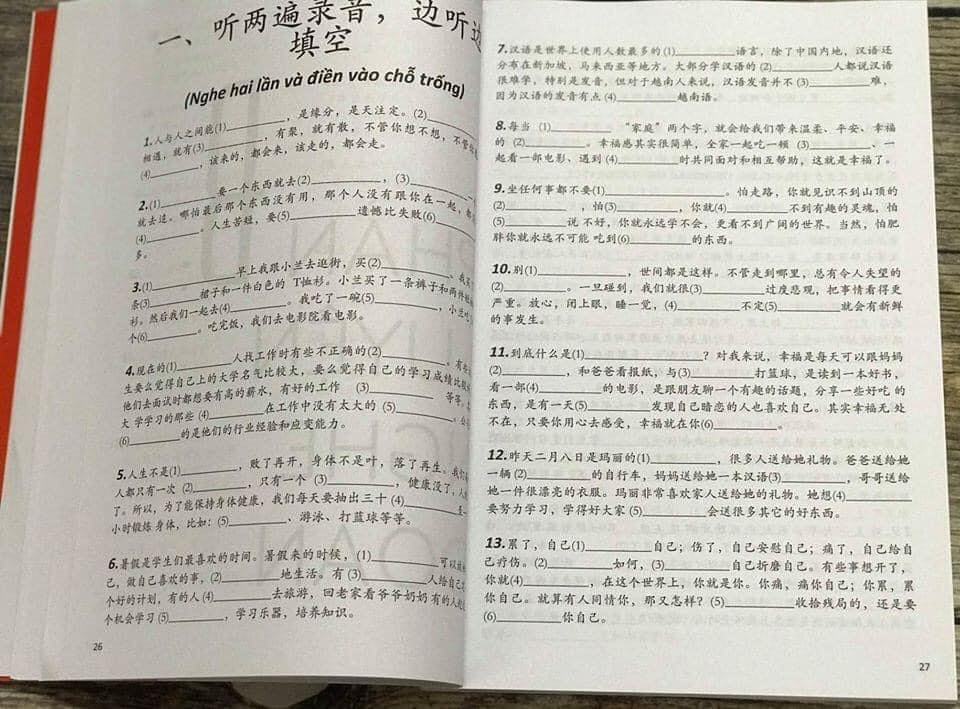 一、听两遍录音，边听边
填空
(Nghe hai lần và điền vào chỗ trống)
1.人与人之间能(1)__________，是缘分，是天注定。(2)__________
相遇，就有(3)__________，有聚，就有散，不管你想不想，不管你
(4)__________，该来的，都会来，该走的，都会走。
2.(1)__________要一个东西就去(2)__________，(3)__________
就去追。哪怕最后那个东西没有用，那个人没有跟你在一起，都
(4)__________。人生苦短，要(5)__________遗憾比失败(6)__________
多。
3.(1)__________早上我跟小兰去逛街，买(2)__________。我买
条(3)__________裙子和一件白色的 T恤衫。小兰买了一条裤子和两件
衫。然后我们一起去(4)__________。我吃了一碗(5)__________，小兰吃
个(6)__________。吃完饭，我们去电影院看电影。
4.现在的(1)__________人找工作时有些不正确的(2)__________。有些
生要么觉得自己上的大学名气比较大，要么觉得自己的学习成绩比
他们去面试时都想要有高的薪水，有好的工作 (3)__________ 等等。
大 学学习的那些 (4)__________在工作中没有太大的 (5)__________。
(6)__________的是他们的行业经验和应变能力。
5.人生不是(1)__________，败了再开，身体不是叶，落了再生。我们
人都只有一次 (2)__________，只有一个 (3)__________，健康没了，人
了。所以，为了能保持身体健康，我们每天要抽出三十 (4)__________
小时锻炼 身体，比如：(5)__________、游泳、打蓝球等等。
6.暑假是学生们最喜欢的时间。暑假来的时候，(1)__________可以
己，做自己喜欢的事，(2)__________地生活。有 (3)__________人给自己
个好的计划，有的人 (4)__________去旅游，回老家看爷爷奶奶 有的人
个机会学习 (5)__________，学习乐器，培养知识。
26
7.汉语是世界上使用人数最多的 (1)__________语言，除了中国内地，汉语还
分布在新加坡，马来西亚等地方。大部分学汉语的 (2)__________人都说汉语
很难学，特别是发音，但对于越南人来说，汉语发音并不 (3)__________难，
因为汉语的发音有点 (4)__________越南语。
8.每当 (1)__________ “家庭” 两个字，就会给我们带来温柔、平安、幸福
的 (2)__________。幸福感其实很简单，全家一起吃一顿 (3)__________、一
起看一部电影、遇到 (4)__________时共同面对和相互帮助，这就是幸福了。
9.坐任何事都不要(1)__________。怕走路，你就见识不到山顶的
(2)__________ ，怕(3)__________，你就(4)__________不到有趣的灵魂，怕
(5)__________说 不好，你就永远学不会，更看不到广阔的世界。当然，怕肥
胖你就永远不可能 吃到(6)__________的东西。
10.别(1)__________，世间都是这样。不管走到哪里，总有令人失望的
(2)__________。一旦碰到，我们就很(3)__________过度悲观，把事情看得更
严重。放心，闭上眼，睡一觉，(4)__________不定(5)__________就会有新鲜
的事发生。
11.到底什么是(1)__________？对我来说，幸福是每天可以跟妈妈
(2)__________，和爸爸看报纸，与(3)__________打篮球，是读到一本好书，
看一部(4)__________的电影，是跟朋友聊一个有趣的话题，分享一些好吃 的
东西，是有一天(5)__________发现自己暗恋的人也喜欢自己。其实幸福无 处
不在，只要你用心去感受，幸福就在你(6)__________。
12.昨天二月八日是玛丽的(1)__________，很多人送给她礼物。爸爸送给她
一辆 (2)__________的自行车，妈妈送给她一本汉语(3)__________，哥哥送给
她一件很漂亮的衣服。玛丽非常喜欢家人送给她的礼物。她想(4)__________
要努力学习，学得好大家 (5)__________会送很多其它的好东西。
13.累了，自己(1)__________自己；伤了，自己安慰自己；痛了，自己给自
己疗伤。(2)__________如何，(3)__________自己折磨自己。有些事想开了，
你就(4)__________，在这个世界上，你就是你。你痛，痛你自己；你累，累
你自己。就算有人同情你，那又怎样？(5)__________收拾残局的，还是要
(6)__________你自己。
27